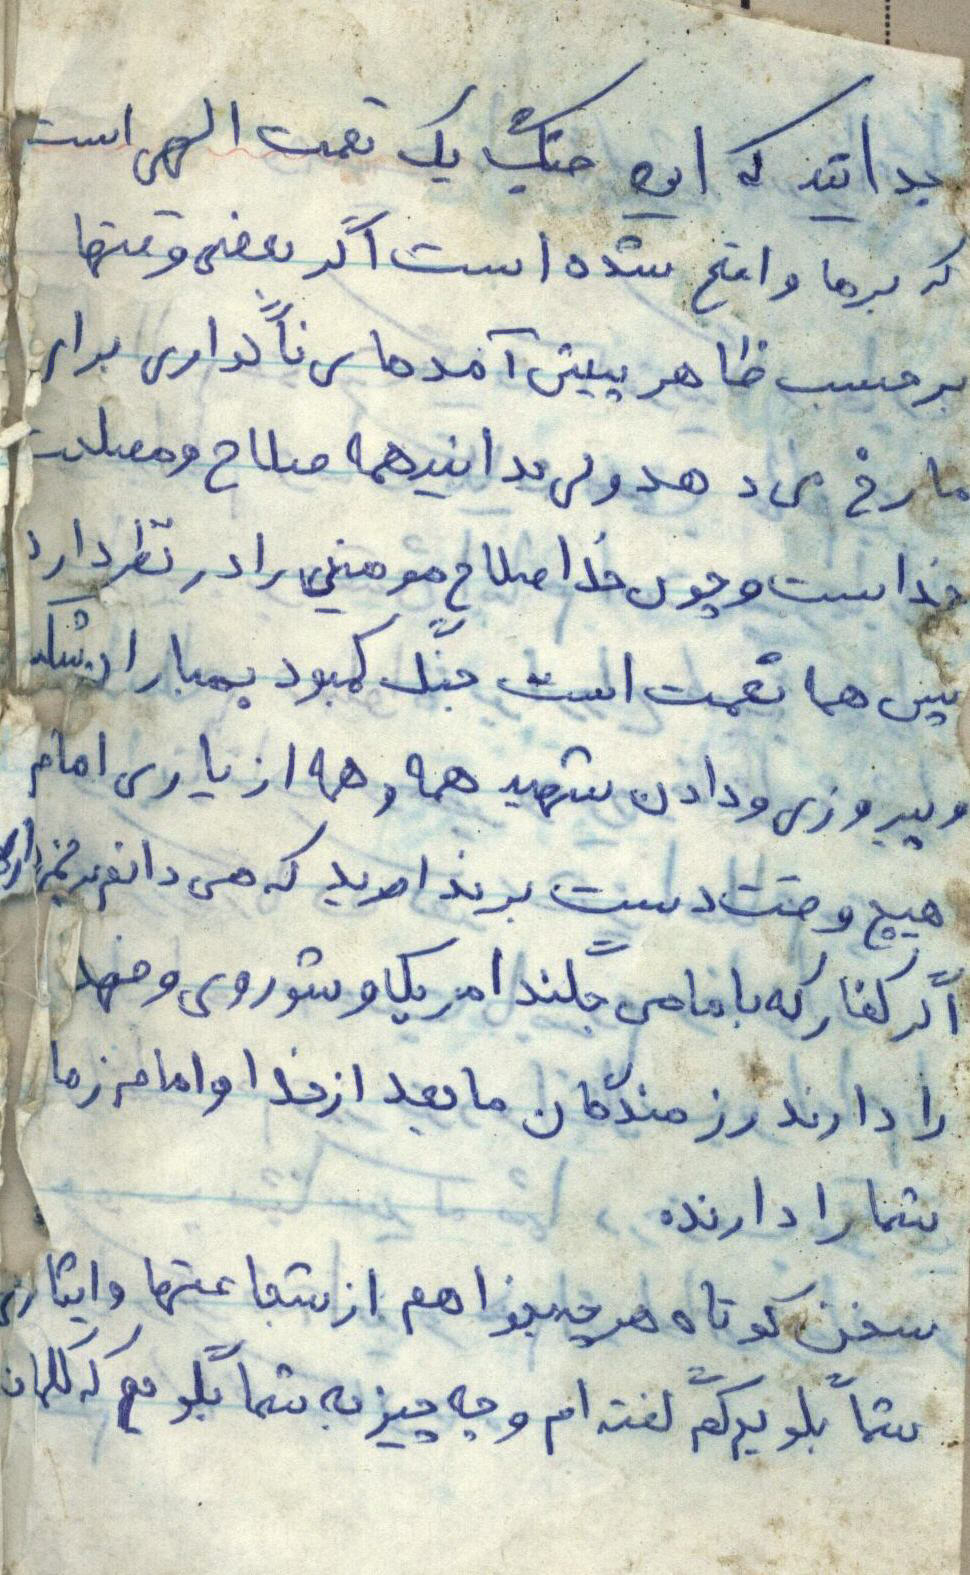 بدانید که این جنگ یک نعمت الهی است
که برما واضح شده است اگر بعضی وقتها
برحسب ظاهر پیش آمدهای ناگواری برای
ما رخ می دهد ولی بدانید همه صلاح و مصلحت
خداست و چون خدا صلاح مومنین را در نظر دارد
پس هما نعمت است جنگ کمبود بمباران شکست
و پیروزی و دادن شهید همه و همه از یاری امام
هیچ وقت دست برندارید که می دانم برنمی دارید
اگر کفار که با ما می جگند امریکا و شوروی و فهد
را دارند رزمندگان ما بعد از خدا و امام زما
شما را دارند
سخن کوتاه هرچه بخواهم از شجاعتها و ایثاری
شما بگویم کم گفته ام و چه چیز به شما بگویم که کلمات